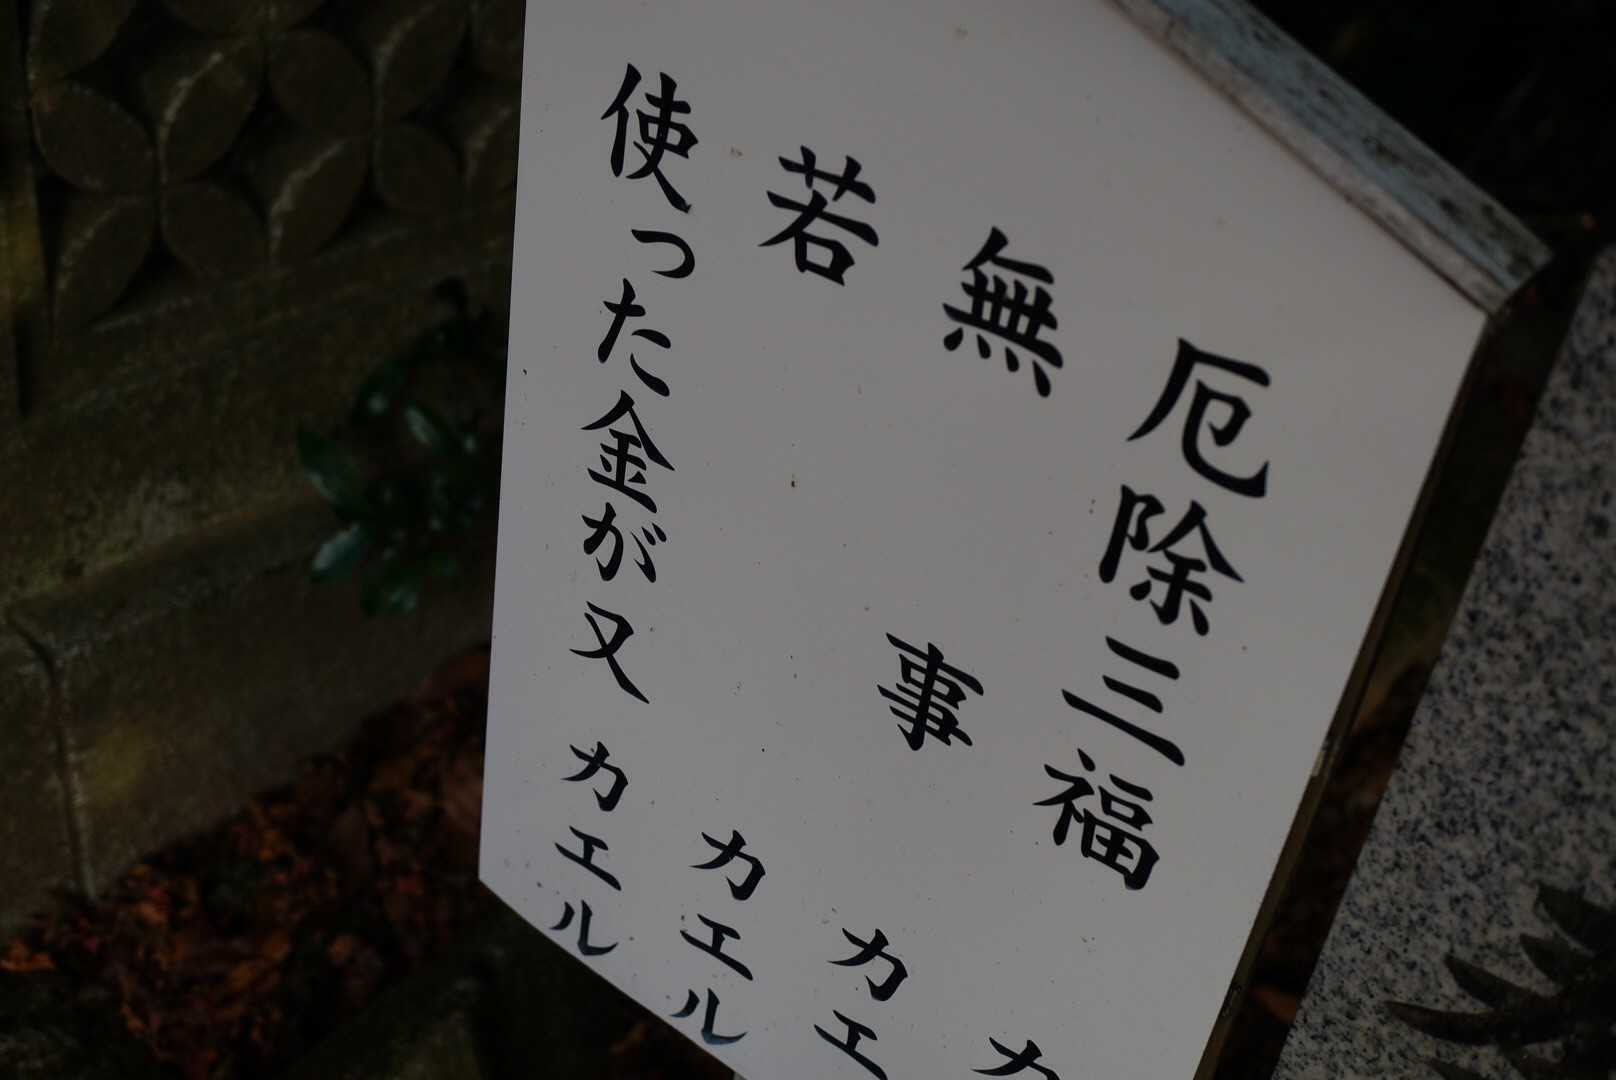 厄除三福カ
無事カエ
若カエル
使った金が又カエル